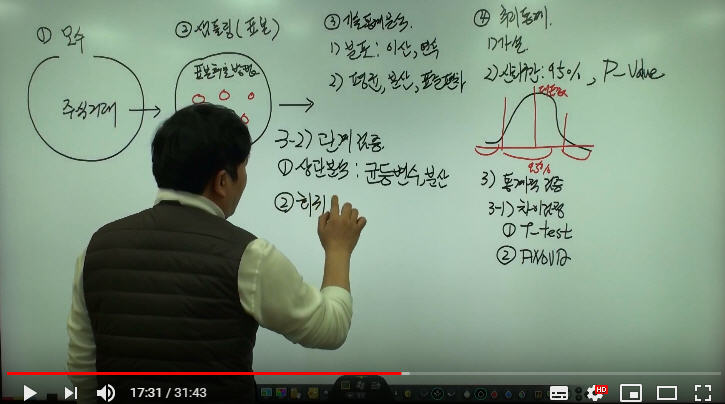 ① 모수
주식거래
② 샘플링(표본)
표본추출방법
③ 기술통계분석
1) 분포: 이산, 연속
2) 평균, 분산, 표준편차
④ 추리통계
1) 가설
2) 신뢰구간: 95%, P-Value
95%
3) 통계적 검증
3-1) 차이검증
① T-test
② ANOVA
3-2) 관계검증
① 상관분석: 균등변수, 분산
② 회귀
17:31 / 31:43
HD